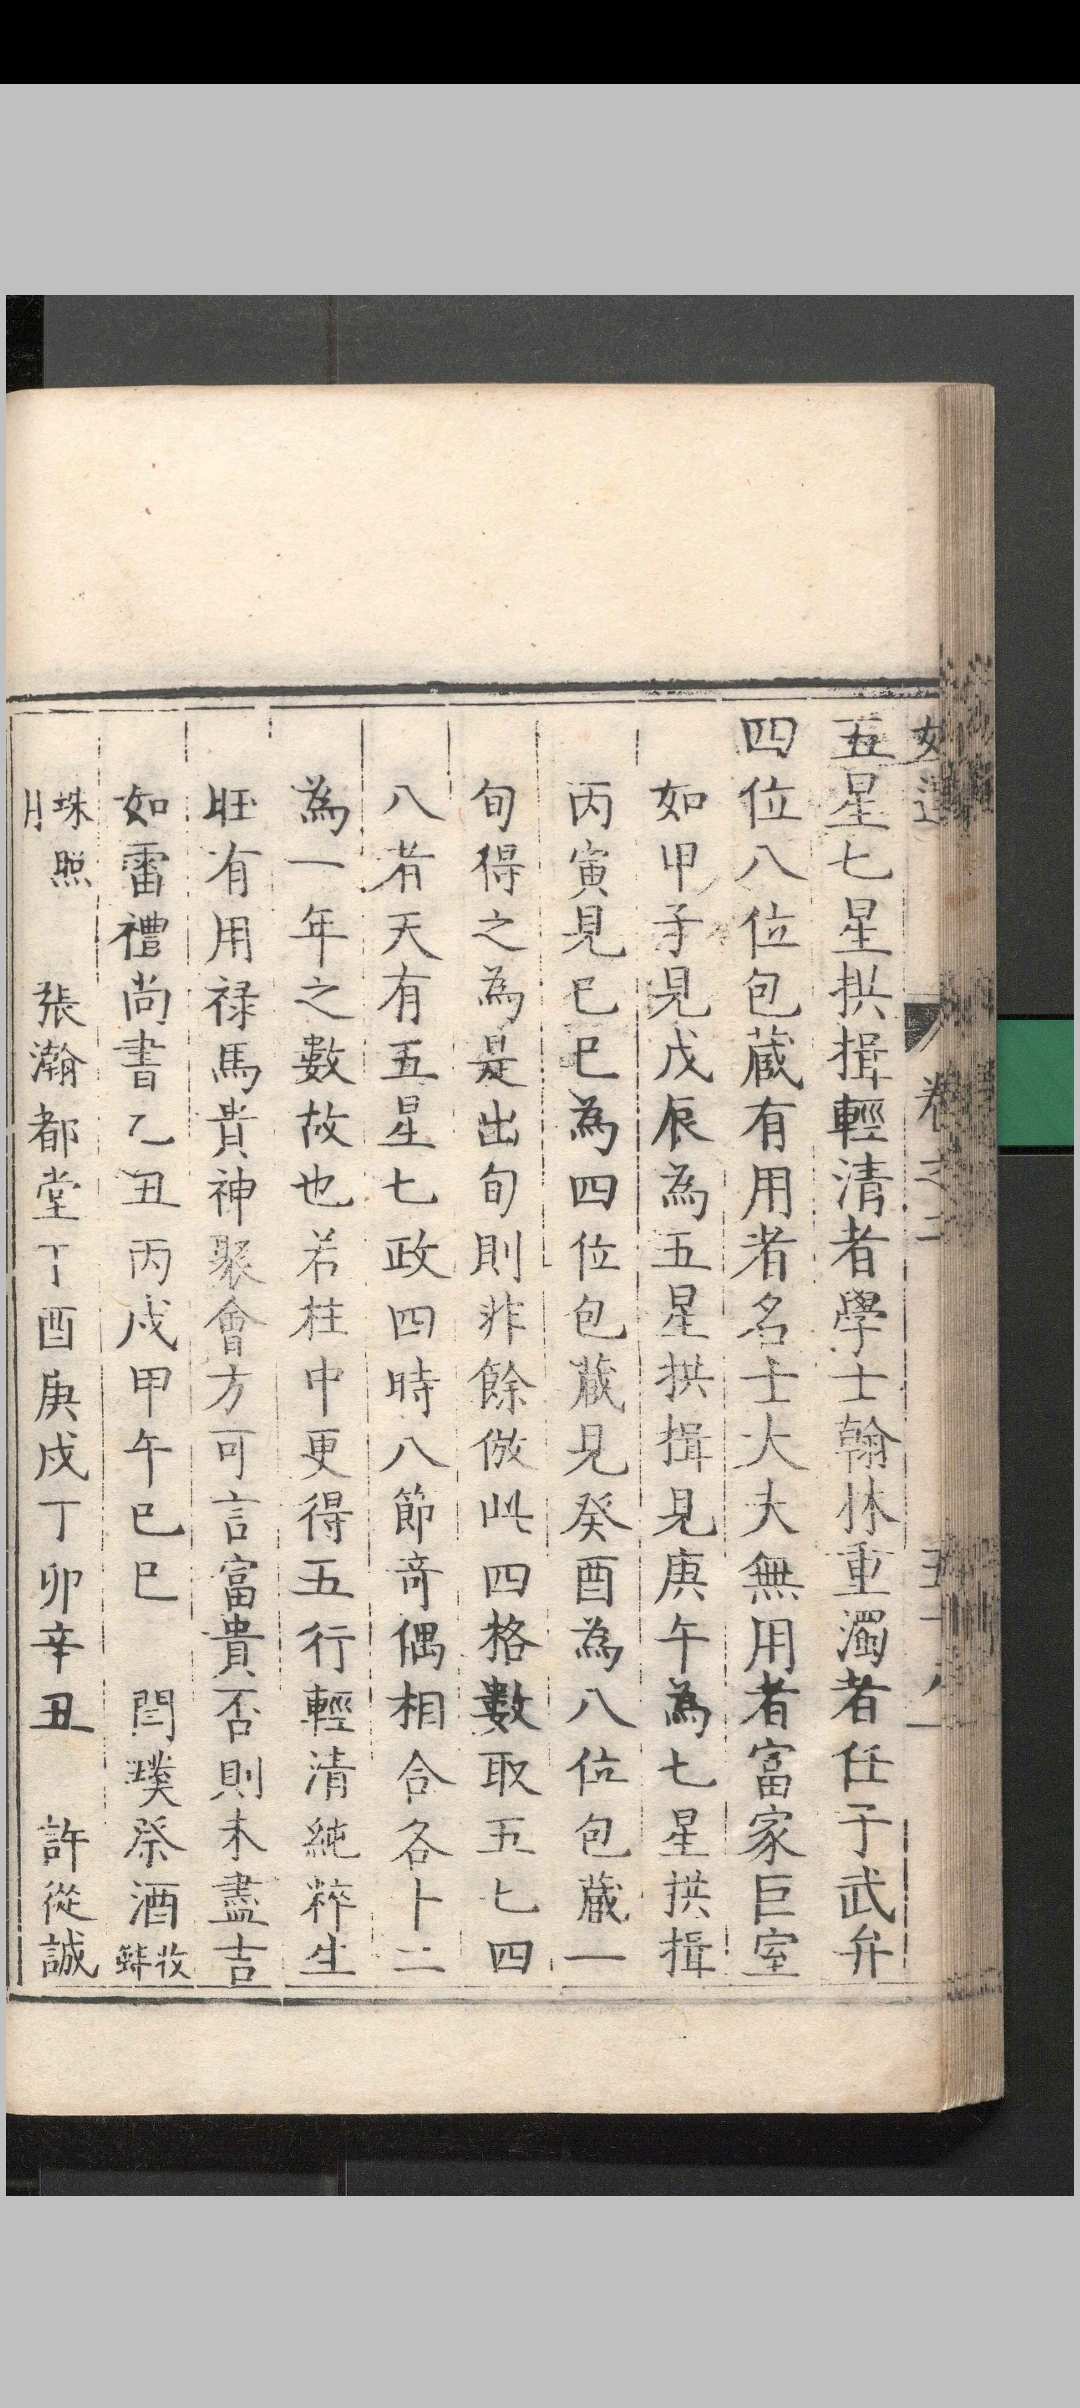 卷之二
五星七星拱揖輕清者學士翰林重濁者任子武弁
四位八位包蔵有用者名士大夫無用者富家巨室
如甲子見戊辰為五星拱揖見庚午為七星拱揖
丙寅見己巳為四位包蔵見癸酉為八位包蔵一
旬得之為是出旬則非餘倣此四格數取五七四
八者天有五星七政四時八節竒偶相合各卜二
為一年之數故也若柱中更得五行輕清純粹生
旺有用禄馬貴神聚會方可言富貴否則未盡吉
如雷禮尚書乙丑丙戌甲午己巳　閆璞祭酒蚌收
珠照月　張瀚都堂丁酉庚戌丁卯辛丑　許從誠